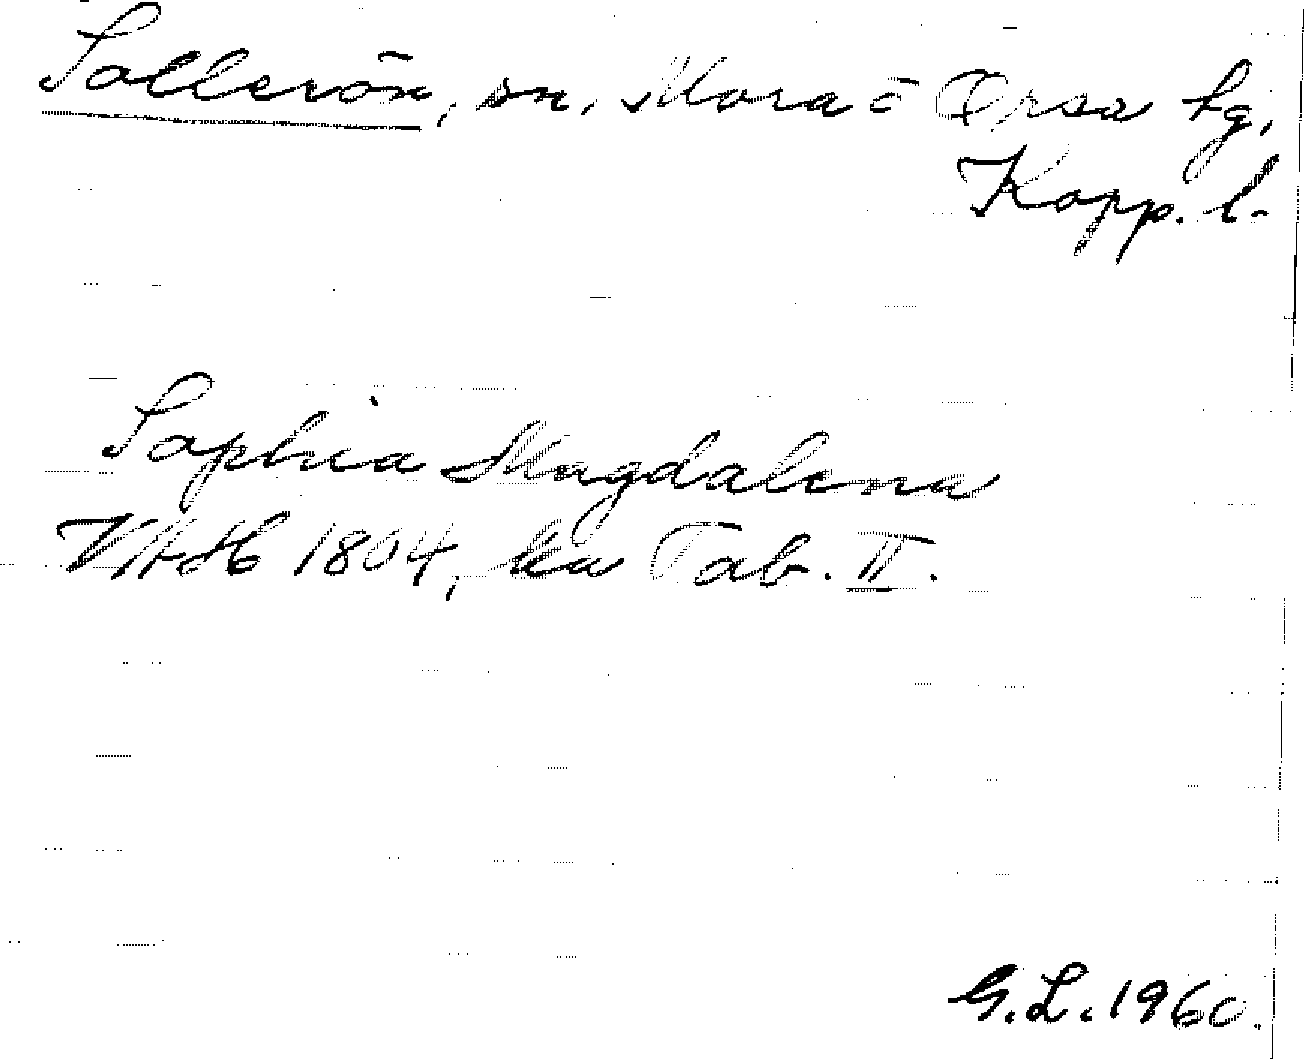 Sollerön, sn, Mora o Orsa hg,
Kopp. l.
Sophia Magdalena
VAH 1804, ka Tab. II.
G.L. 1960.